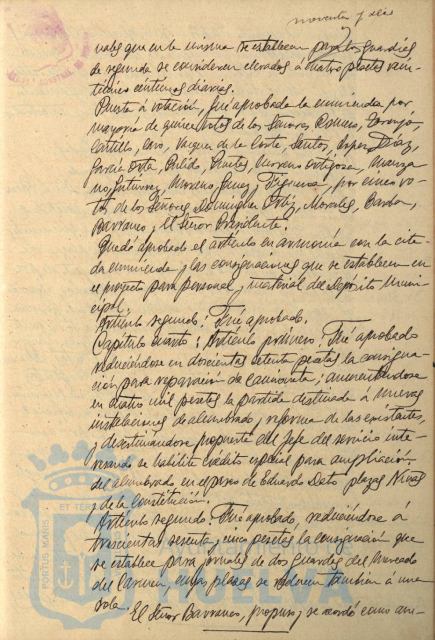 noventa y seis
nales que en la misma se establecen para los guardias
de segunda se consideren elevados á cuatro pesetas vein-
ticinco céntimos diarios.
Puesta á votación, fué aprobada la enmienda por
mayoría de quince votos de los Señores Romero,
Castillo, Oso, Vazquez de la Corte, Santos, Díaz,
García Orta, Pulido, Moreno Ortigosa,
Gutierrez, Moreno Gomez, Figueroa, por cinco vo-
tos de los Señores Dominguez Ortiz, Morales, Barba,
Barranco, y el Señor Presidente.
Quedó aprobado el artículo en armonía con la cita-
da enmienda y las consignaciones que se establecen en
el proyecto para personal y material del Depósito Muni-
cipal.
Artículo segundo: Fué aprobado.
Capítulo cuarto; Artículo primero: Fué aprobado
reduciéndose en doscientas setenta pesetas la consigna-
ción para reparación de camioneta; aumentándose
en cuatro mil pesetas la partida destinada á nuevas
instalaciones de alumbrado y reforma de las existentes,
y desestimándose propuesta del Jefe del servicio inte-
resando se habilite crédito especial para ampliación
del alumbrado en el paseo de Eduardo Dato plazas Niña
y de la Constitución.
Artículo segundo: Fué aprobado, reduciéndose á
trescientas sesenta y cinco pesetas la consignación que
se establece para jornales de dos Guardas del Mercado
del Carmen, cuyas plazas se reducen también á una
sola.
El Señor Barranco, propuso y se acordó como am-
PORTUS MARIS
ET TERRÆ
HUELVA